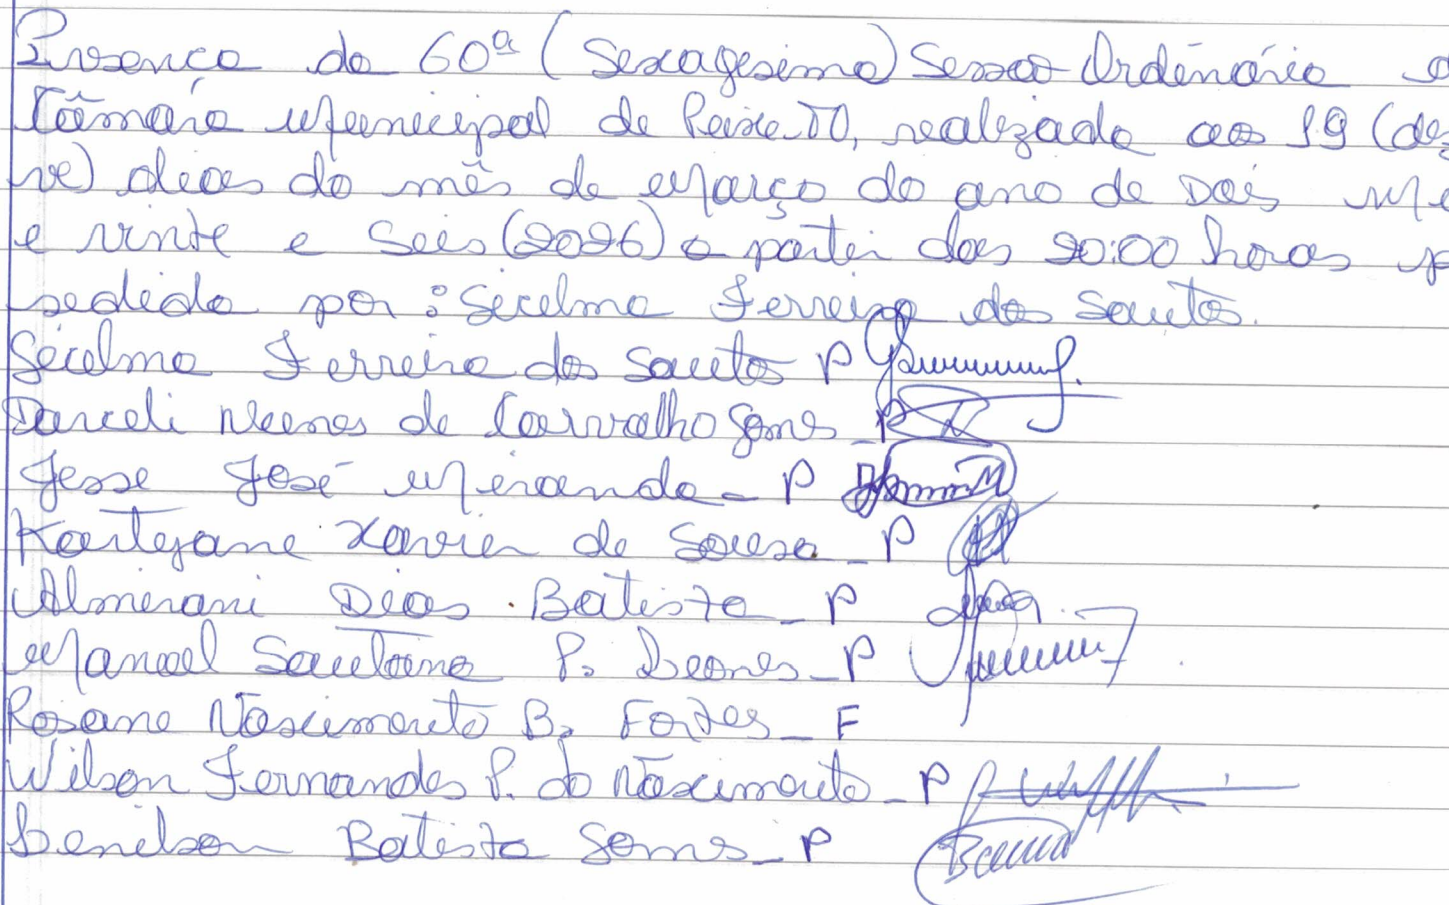 Presença da 60ª (Sexagesima) Sessão Ordinária d
Câmara Municipal de Peixe-TO, realizada aos 19 (dez
ve) dias do mês de Março do ano de Dois Mi
e vinte e Seis (2026) a partir das 20:00 horas p
sedida por: Gicelma Ferreira dos Santos.
Gicelma Ferreira dos Santos P
Darceli Nunes de Carvalho Gomes_P
Jesse José Miranda_P
Kartejane Xavier de Sousa_P
Almerani Dias Batista_P
Manoel Santana P. Soares_P
Rosane Nascimento B. Fortes_F
Wilson Fernandes P. do Nascimento_P
Denilson Batista Gomes_P